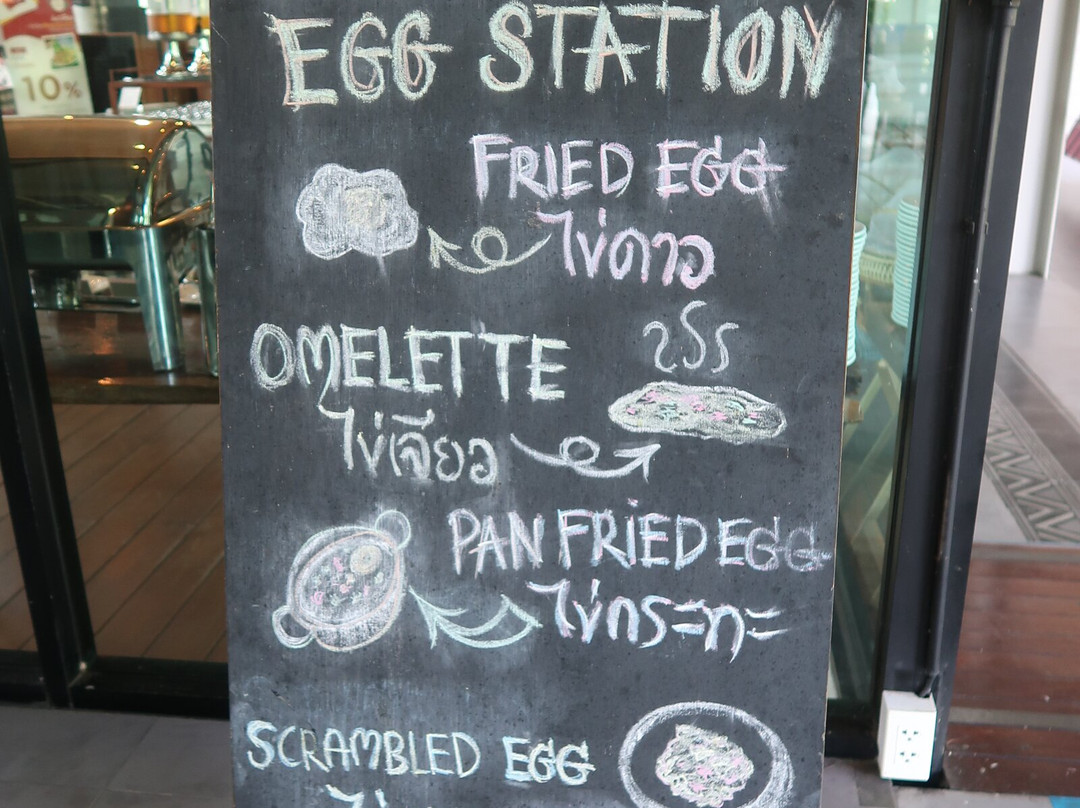 10%
EGG STATION
FRIED EGG
ไข่ดาว
OMELETTE
ไข่เจียว
PAN FRIED EGG
ไข่กระทะ
SCRAMBLED EGG